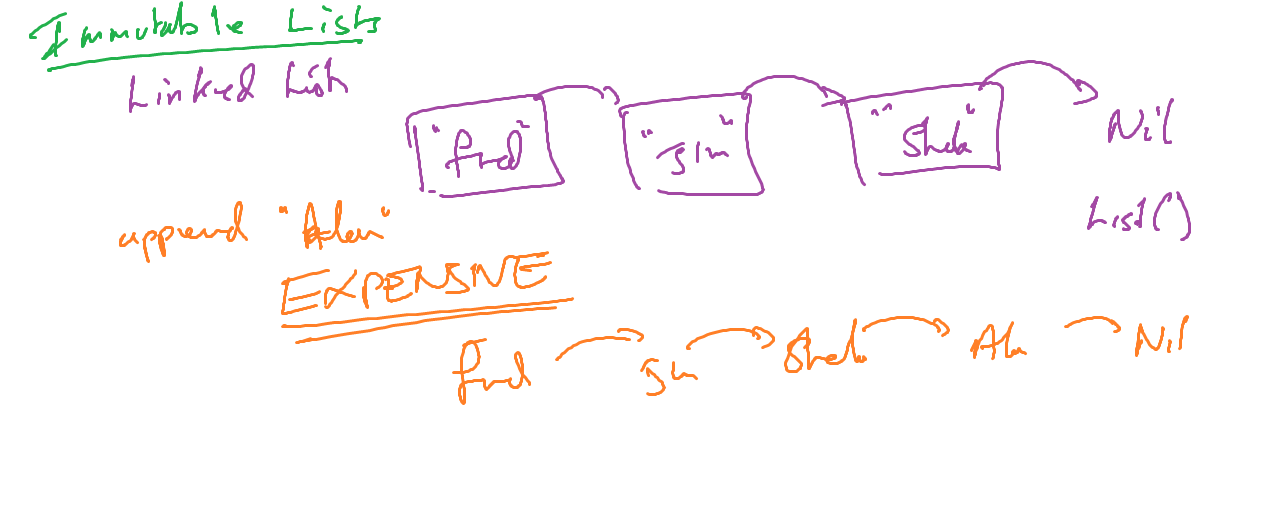 Immutable Lists
Linked List
"fred" "Jim" "Sheila" Nil
List()
append "Alan"
EXPENSIVE
fred Jim Sheila Alan Nil